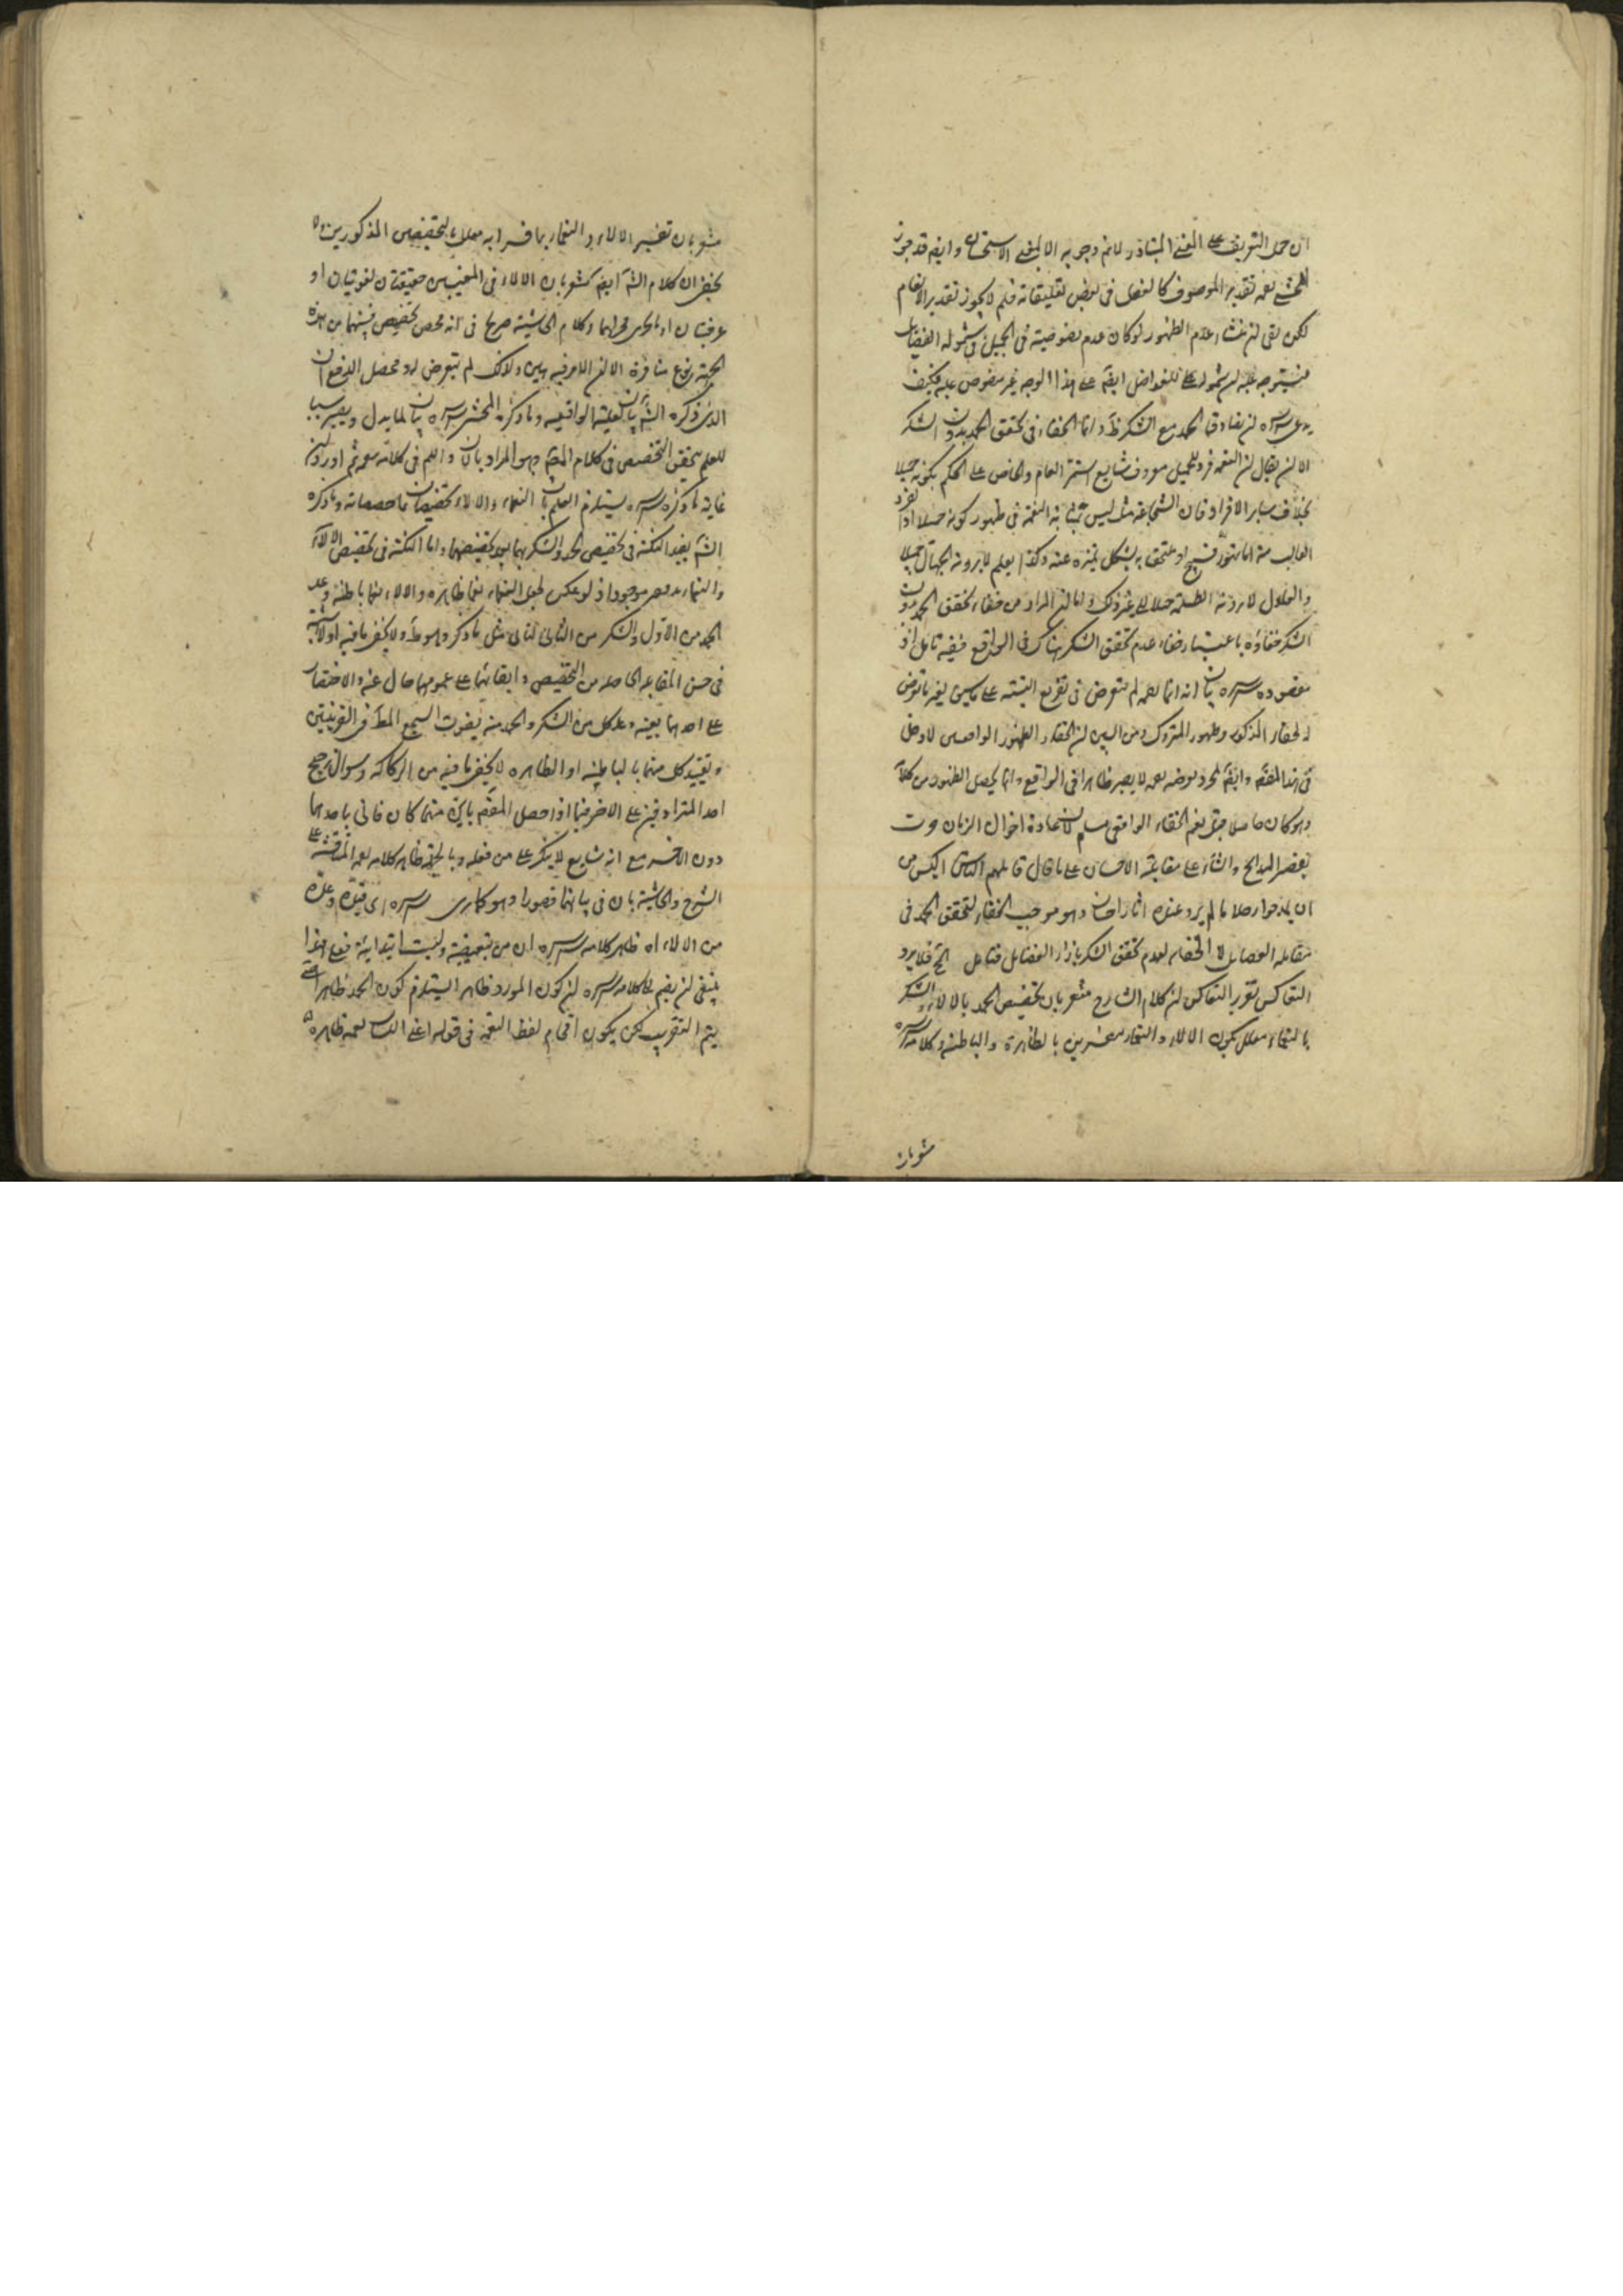 ان حمل التعريف على المعنى المتبادر لازم وجوبه الا لمعنى الاستحقاق وايضا قد جوز
المحشى نفسه تقدير الموصوف كالفعل فى بعض تعليقاته فلم لا يجوز تقدير الانعام
لكن بقى ان منشاء عدم الظهور لو كان عدم خصوصيته فى الجميل شموله الفضايل
فيتوجه عليه ان شموله للفواضل ايضا على هذا الوجه غير منصوص عليه فكيف
سره ان تصادق الحمد مع الشكر وانما الخفاء فى تحقق الحمد بدون الشكر
الا ان يقال ان النعمة فرد للجميل معروف شايع اشتهر العام والخاص على الحكم بكونه جميلا
بخلاف ساير الافراد فان الشجاعة مثلا ليس بمثابة النعمة فى ظهور كونه جميلا اذ الفرد
الغالب منه اما تهور قبيح او ملتحق به يشكل تميزه عنه وكذا لعلم لا يرونه الجهال جميلا
والعدل لا يرونه الظلمة جميلا الى غير ذلك واما ان المراد من خفاء تحقق الحمد بدون
الشكر خفاؤه باعتبار خفاء عدم تحقق الشكر هناك فى الواقع ففيه تامل اذ
مقصوده سره بيان انه انما لم يتعرض فى تفريع النسبة على ما سبق لغير ما تعرض
له لخفاء المذكور وظهور المتروك ومن البين ان الخفاء والظهور الواقعيين لا دخل
فى هذا المقام وايضا لمجرد تعرضه له لا يصير ظاهرا فى الواقع وانما يحصل الظهور من كلامه
وهو كان حاصلا قبل نعم الخفاء الواقعى مسلم لان عادة اخوان الزمان جرت
بقصر المدايح والثناء على مقابلة الاحسان على ما قال قائلهم الناس اكيس من
ان يمدحوا رجلا ما لم يروا عنده اثار احسان وهو موجب الخفاء لتحقق الحمد فى
مقابلة الفضايل لا الخفاء لعدم تحقق الشكر بازاء الفضايل فتامل الخ فلا يرد
التعاكس تقرير التعاكس ان كلام الشارح مشعر بان تخصيص الحمد بالالاء والشكر
بالنعماء معلل بكون الالاء والنعماء مفسرين بالظاهرة والباطنة وكلامه سره
مشعر بان
مشعر بان تفسير الالاء والنعماء بما فسرا به معلل بالتخصيص المذكورين
يخفى ان كلام الشارح ايضا مشعر بان الالاء فى المعنيين حقيقتان لغويتان او
عرفيتان او ما يجرى مجراهما وكلام الحاشية صريح فى انه محض تخصيص فبينهما من هذه
الجهة نوع منافرة الا ان الامر فيه هين ولذلك لم يتعرض له ومحصل الدفع ان
الذى ذكره الشارح بيان لعلية الواقعية وما ذكره المحشى سره بيان لما يدل ويصير سببا
للعلم بتحقق التخصيص فى كلام المصنف وهو المراد بالان واللم فى كلامه
غاية ما ذكره سره يستلزم العلم بان النعماء والالاء تخصيصان باحصصاته وما ذكره
الشارح يفيد النكتة فى تخصيص الحمد والشكر بهما بعد تخصيصهما واما النكتة فى تخصيص الالاء
والنعماء فغير موجود اذ لو عكس لجعل النعماء نعما ظاهرة والالاء نعما باطنة وعد
الحمد من الاول والشكر من الثانى لتاتى مثل ما ذكر وهو ظ ولا يخفى ما فيه اولا شبهة
فى حسن المقابلة الحاصلة من التخصيص وابقائهما على عمومهما خال عنه والاختصار
على احدهما بعينه وعد كل من الشكر والحمد منه يفوت السجع المط فى القرينتين
وتقييد كل منهما بالباطنة او الظاهرة لا يخفى ما فيه من الركاكة وسوال ترجيح
احد المترادفين على الاخر فيما اذا حصل المقصود باى منهما كان فاتى باحدهما
دون الاخر مع انه شايع لا ينكر على من فعله وبالجملة ظاهر كلامه المناقشة على
الشرح والحاشية بان فى بيانهما قصورا وهو كما ترى سره اى قيده وعده
من الالاء اه ظاهر كلامه سره ان من تبعيضية وليست ابتدائية فعلى هذا
ينبغى ان يضم الى كلامه سره ان كون المورد ظاهرا يستلزم كون الحمد ظاهرا حتى
يتم التقريب لكن يكون اقحام لفظ النعمة فى قوله اعنى اللسان نعمة ظاهرة